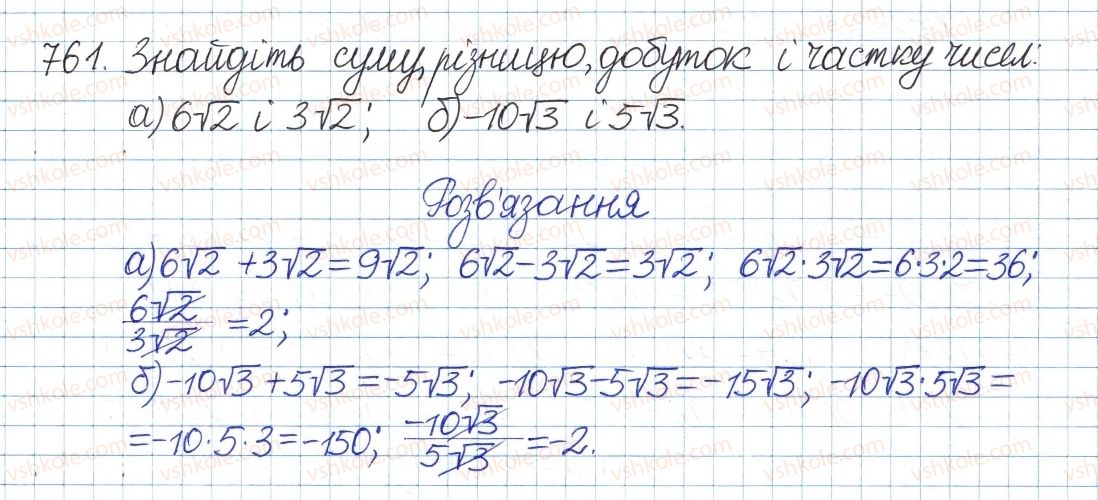 761. Знайдіть суму, різницю, добуток і частку чисел:
а) 6√2 і 3√2; б) -10√3 і 5√3.
Розв'язання
а) 6√2 + 3√2 = 9√2; 6√2 - 3√2 = 3√2; 6√2·3√2 = 6·3·2 = 36;
6√2/3√2 = 2;
б) -10√3 + 5√3 = -5√3; -10√3 - 5√3 = -15√3; -10√3·5√3 =
= -10·5·3 = -150; -10√3/5√3 = -2.